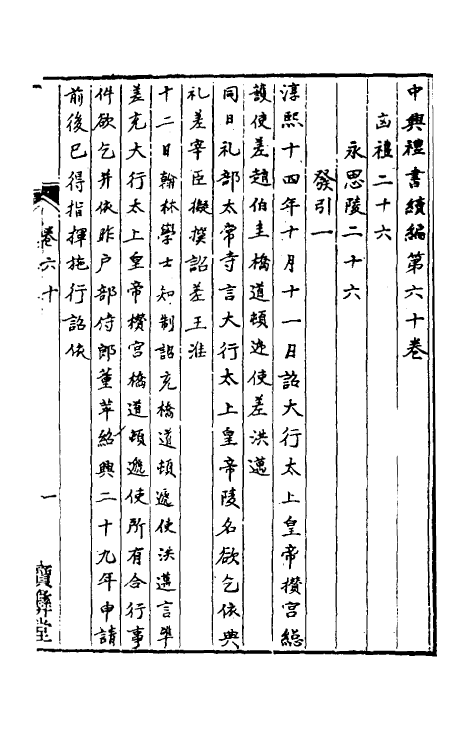 中興禮書續編第六十卷
凶禮二十六
永思陵二十六
發引一
淳熙十四年十月十一日詔大行太上皇帝攢宮總
護使差趙伯圭橋道頓遞使差洪邁
同日礼部太常寺言大行太上皇帝陵名欲乞依典
礼差宰臣擬撰詔差王淮
十二日翰林學士知制誥充橋道頓遞使洪邁言準
差充大行太上皇帝攢宮橋道頓遞使所有合行事
件欲乞并依昨户部侍郎董苹紹興二十九年申請
前後已得指揮施行詔依
卷六十
一
寶彝堂